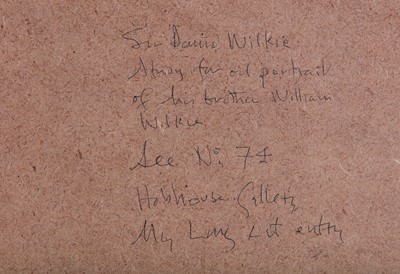 Sir David Wilkie
Study for oil portrait
of his brother William
Wilkie
See No: 74
Hobhouse Gallery
My Long List entry